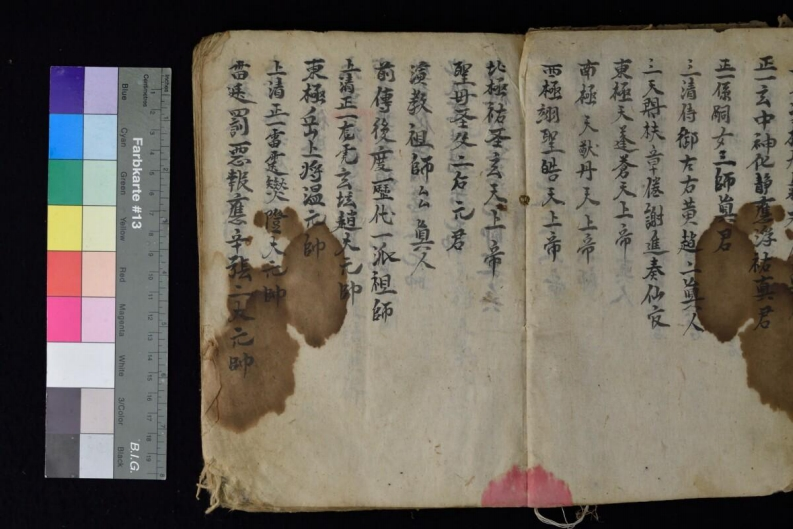 正一玄中神化靜應浮祐真君
正一係嗣女三師真君
三清侍御左右黄趙二真人
三天門下扶章捧謝進奏仙官
東極天蓬蒼天上帝
南極天猷丹天上帝
西極翊聖皓天上帝
北極祐圣玄天上帝
聖母圣父二右元君
演教祖師厶厶真人
前傳後度歷代一派祖師
上清正一龙虎玄坛趙大元帥
東極岳上将温元帥
上清正一雷霆
元帥
雷廷罰惡報應辛張
元帥
Farbkarte #13
Blue
Cyan
Green
Yellow
Red
Magenta
White
3/Color
Black
Centimetres
Inches
B.I.G.